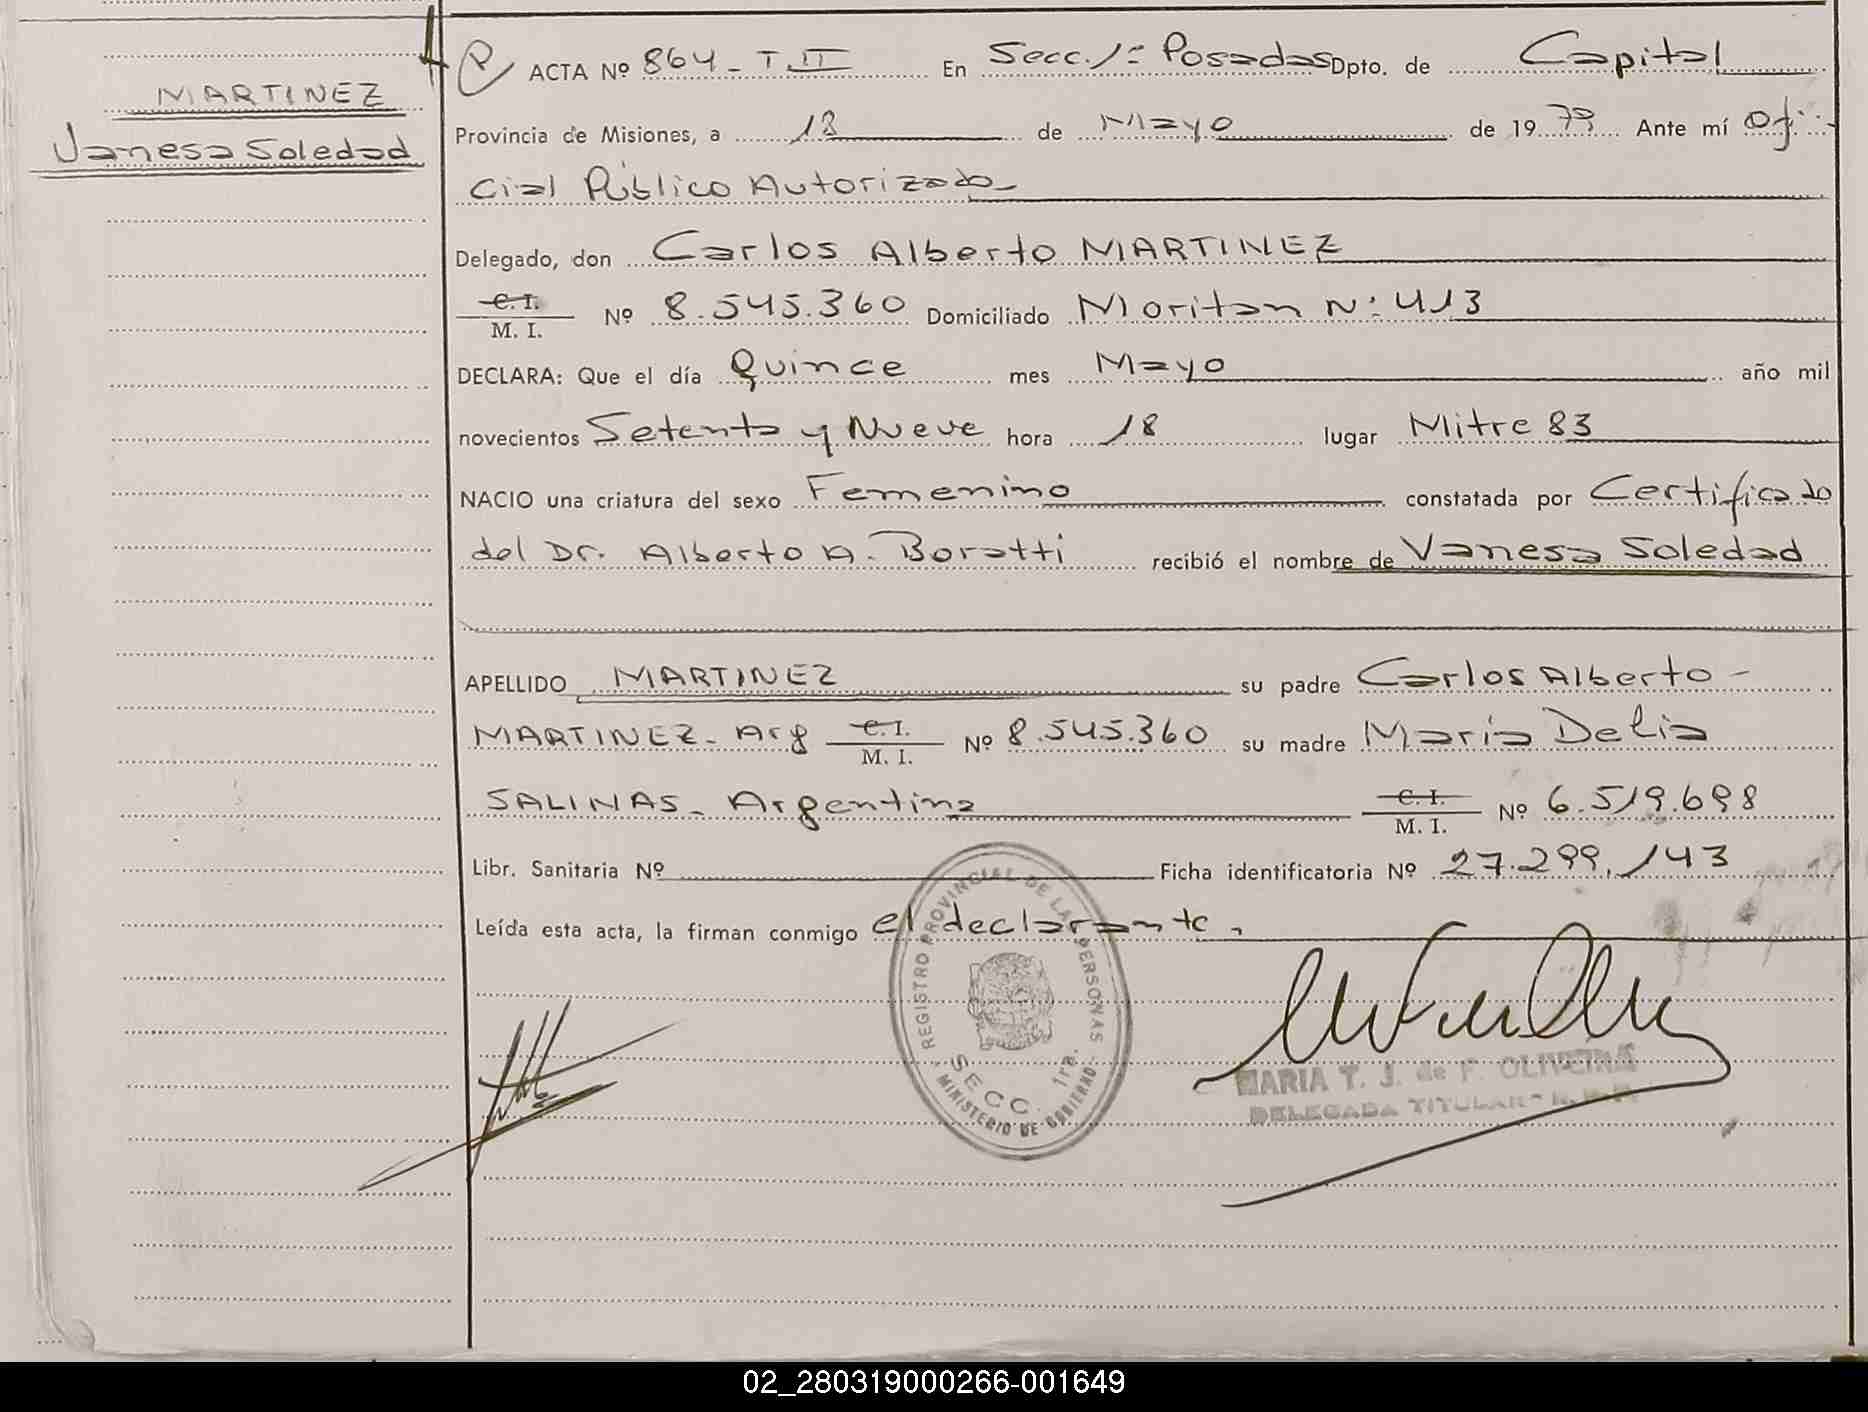 MARTINEZ
Vanesa Soledad
ACTA Nº 864 - T II En Secc. 1ª Posadas Dpto. de Capital
Provincia de Misiones, a 18 de Mayo de 1979 Ante mí Ofi-
cial Público Autorizado -
Delegado, don Carlos Alberto MARTINEZ
C. I.
M. I. Nº 8.545.360 Domiciliado Moritan Nº 413
DECLARA: Que el día Quince mes Mayo año mil
novecientos Setenta y Nueve hora 18 lugar Mitre 83
NACIO una criatura del sexo Femenino constatada por Certificado
del Dr. Alberto A. Boratti recibió el nombre de Vanesa Soledad
APELLIDO MARTINEZ su padre Carlos Alberto -
MARTINEZ - Arg C. I.
M. I. Nº 8.545.360 su madre María Delia
SALINAS - Argentina C. I.
M. I. Nº 6.519.698
Libr. Sanitaria Nº Ficha identificatoria Nº 27.299.143
Leída esta acta, la firman conmigo el declarante.
REGISTRO PROVINCIAL DE LAS PERSONAS
SECC. 1ra.
MINISTERIO DE GOBIERNO
MARIA T. J. de F. OLIVEIRA
DELEGADA TITULAR
02_280319000266-001649